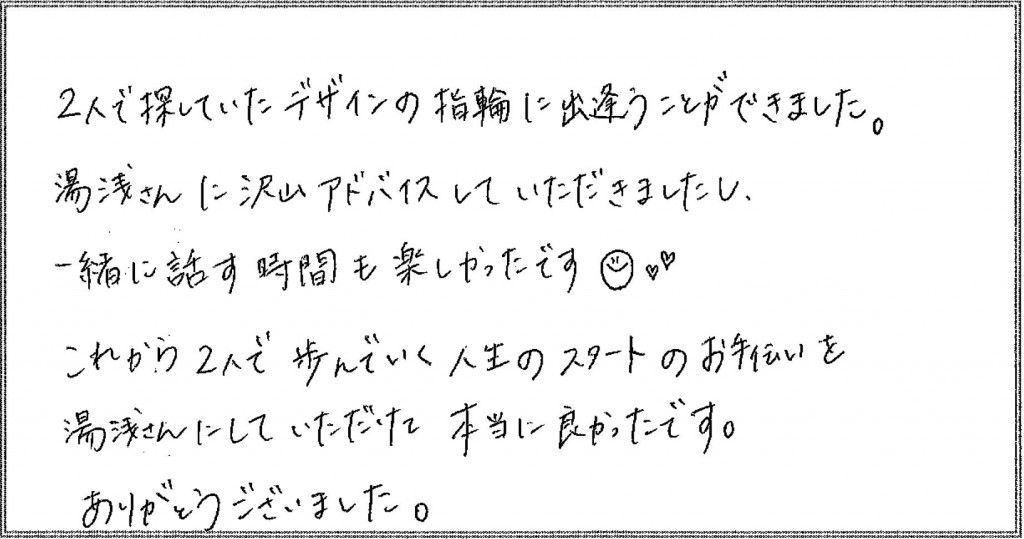 2人で探していたデザインの指輪に出逢うことができました。
湯浅さんに沢山アドバイスしていただきましたし、
一緒に話す時間も楽しかったです
これから2人で歩んでいく人生のスタートのお手伝いを
湯浅さんにしていただけて本当に良かったです。
ありがとうございました。